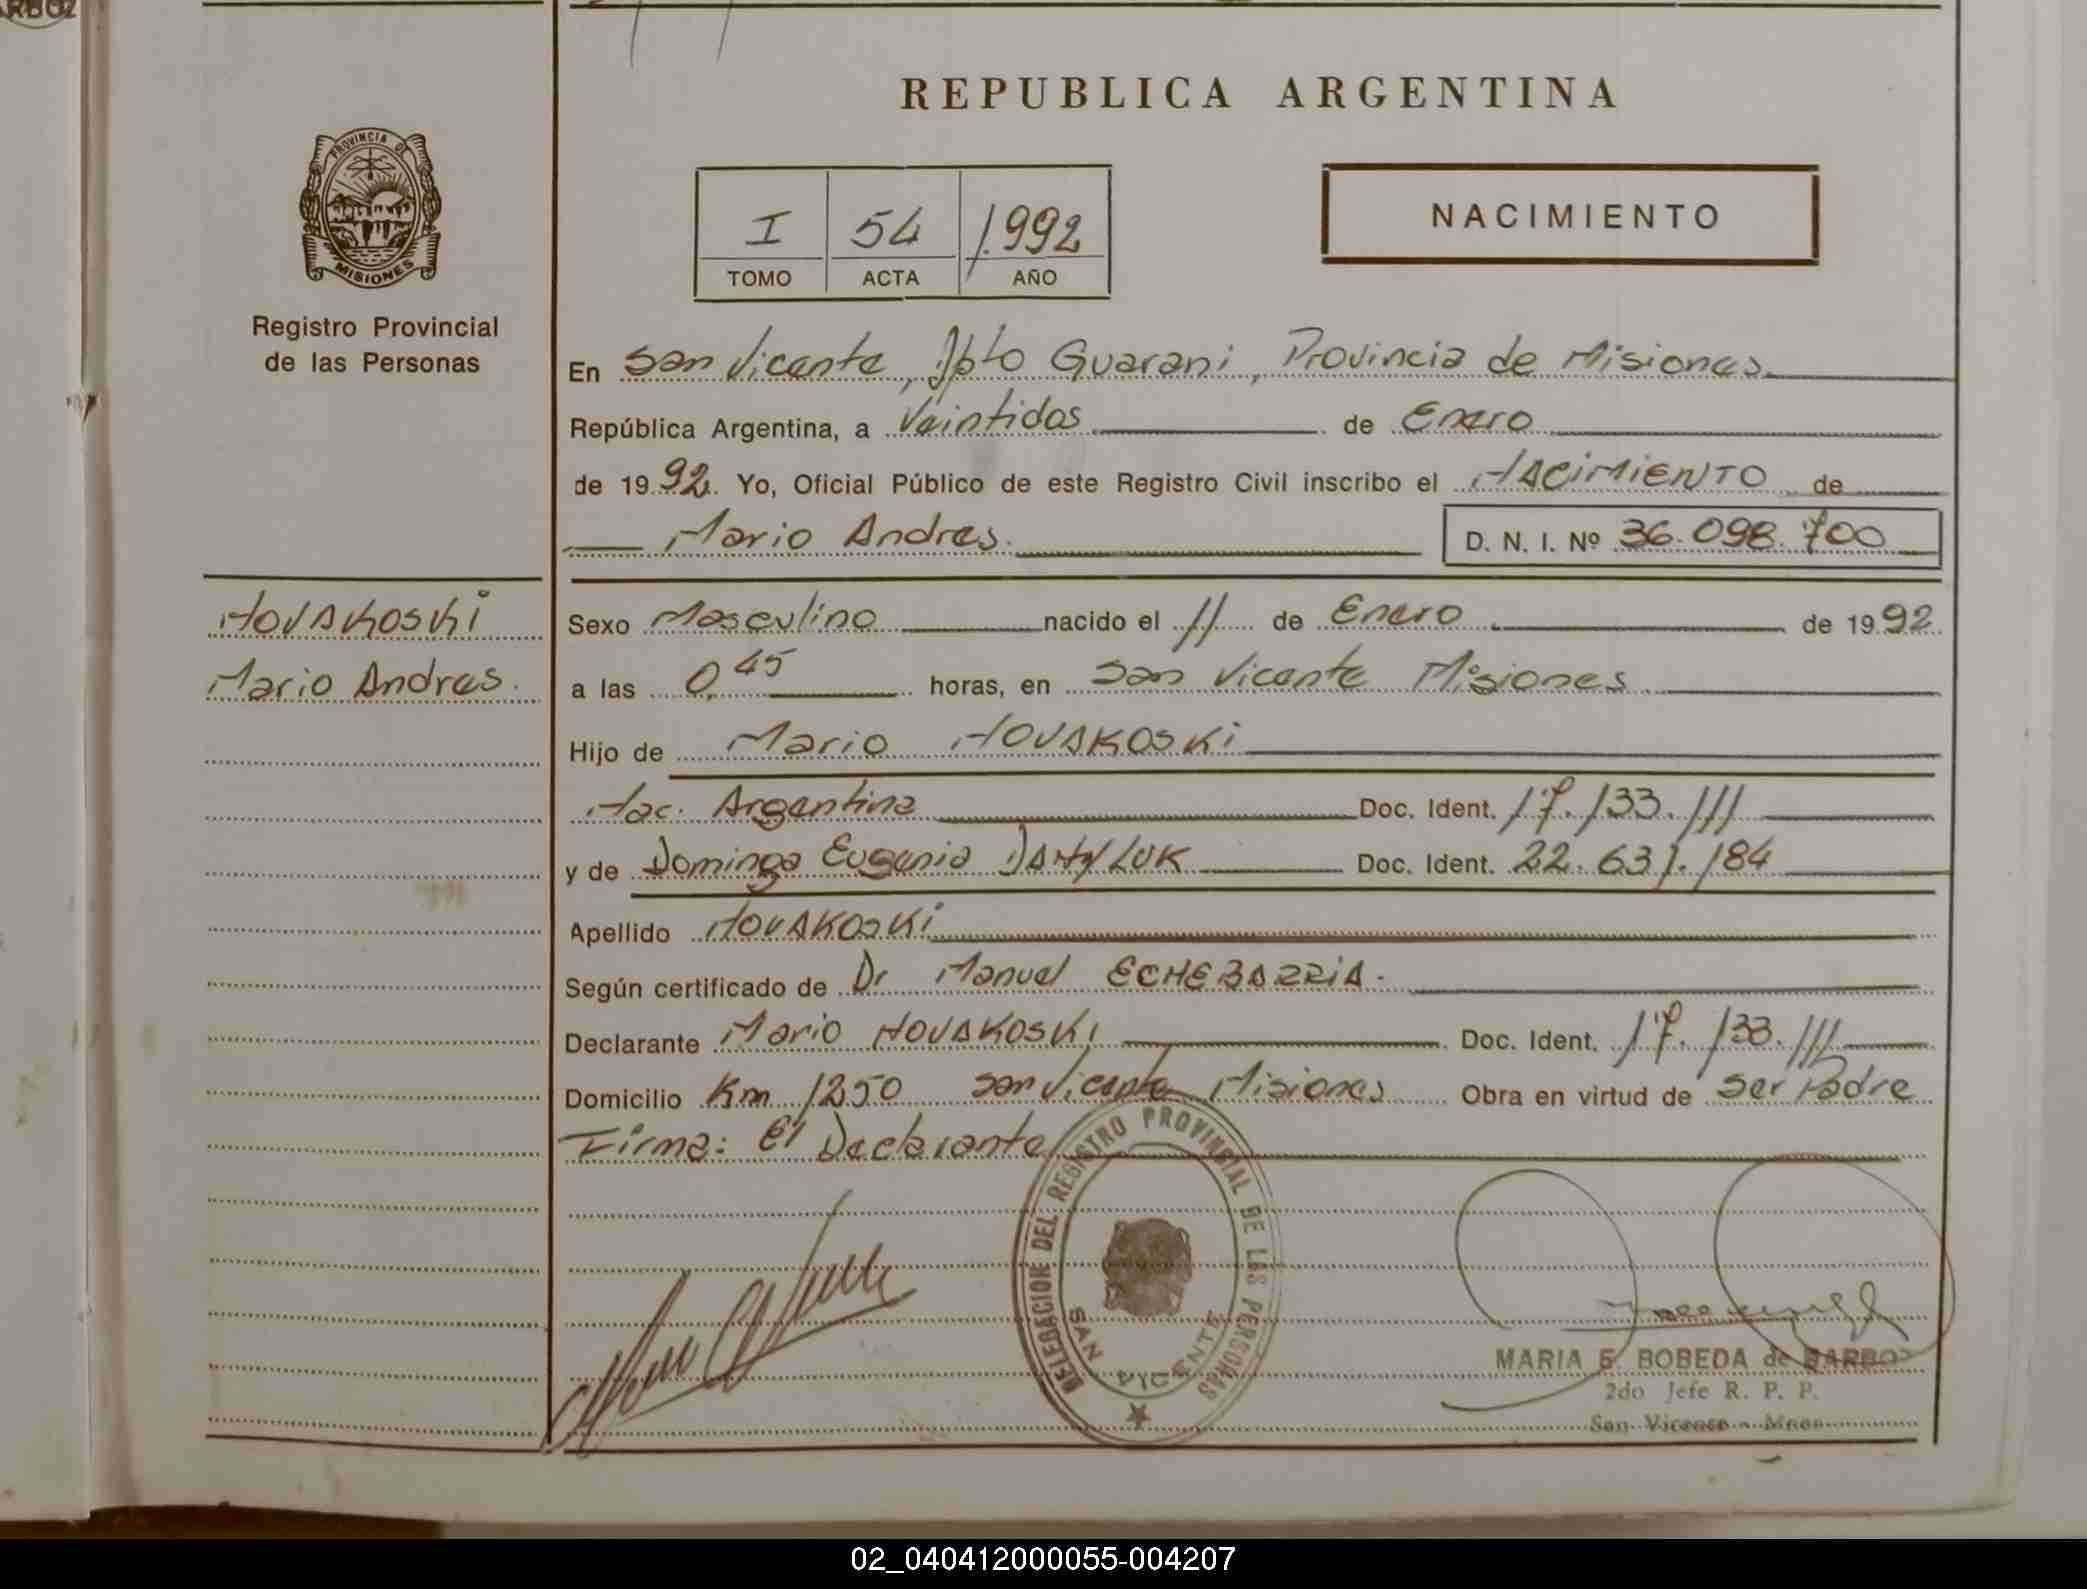 ARBOZ
REPUBLICA ARGENTINA
PROVINCIA DE
MISIONES
Registro Provincial
de las Personas
I 54 1.992
TOMO ACTA AÑO
NACIMIENTO
En San Vicente, Dpto Guarani, Provincia de Misiones.
República Argentina, a Veintidos de Enero
de 1992. Yo, Oficial Público de este Registro Civil inscribo el NACIMIENTO de
Mario Andres. D. N. I. Nº 36.098.700
NOVAKOSKI
Mario Andres.
Sexo Masculino nacido el 11 de Enero de 1992
a las 0,45 horas, en San Vicente Misiones
Hijo de Mario NOVAKOSKI
Nac. Argentina Doc. Ident. 17.133.111
y de Dominga Eugenia DANYLUK Doc. Ident. 22.631.184
Apellido NOVAKOSKI
Según certificado de Dr Manuel ECHEBARRIA.
Declarante Mario NOVAKOSKI Doc. Ident. 17.133.111
Domicilio Km 1250 San Vicente Misiones Obra en virtud de Ser Padre
Firma: El Declarante
DELEGACION DEL REGISTRO PROVINCIAL DE LAS PERSONAS
SAN VICENTE
MARIA E. BOBEDA de BARBOZ
2do Jefe R. P. P.
San Vicente - Mnes
02_040412000055-004207